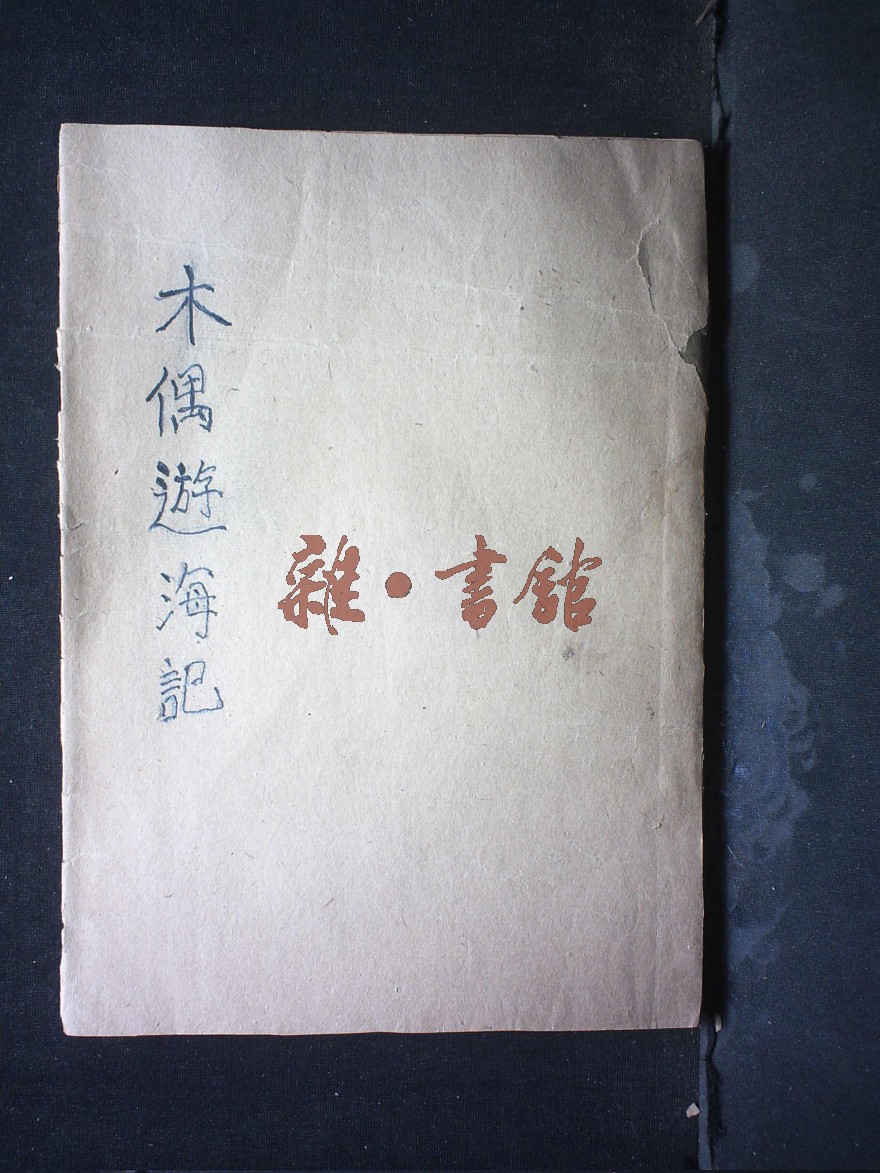 木偶遊海記
雜·書館